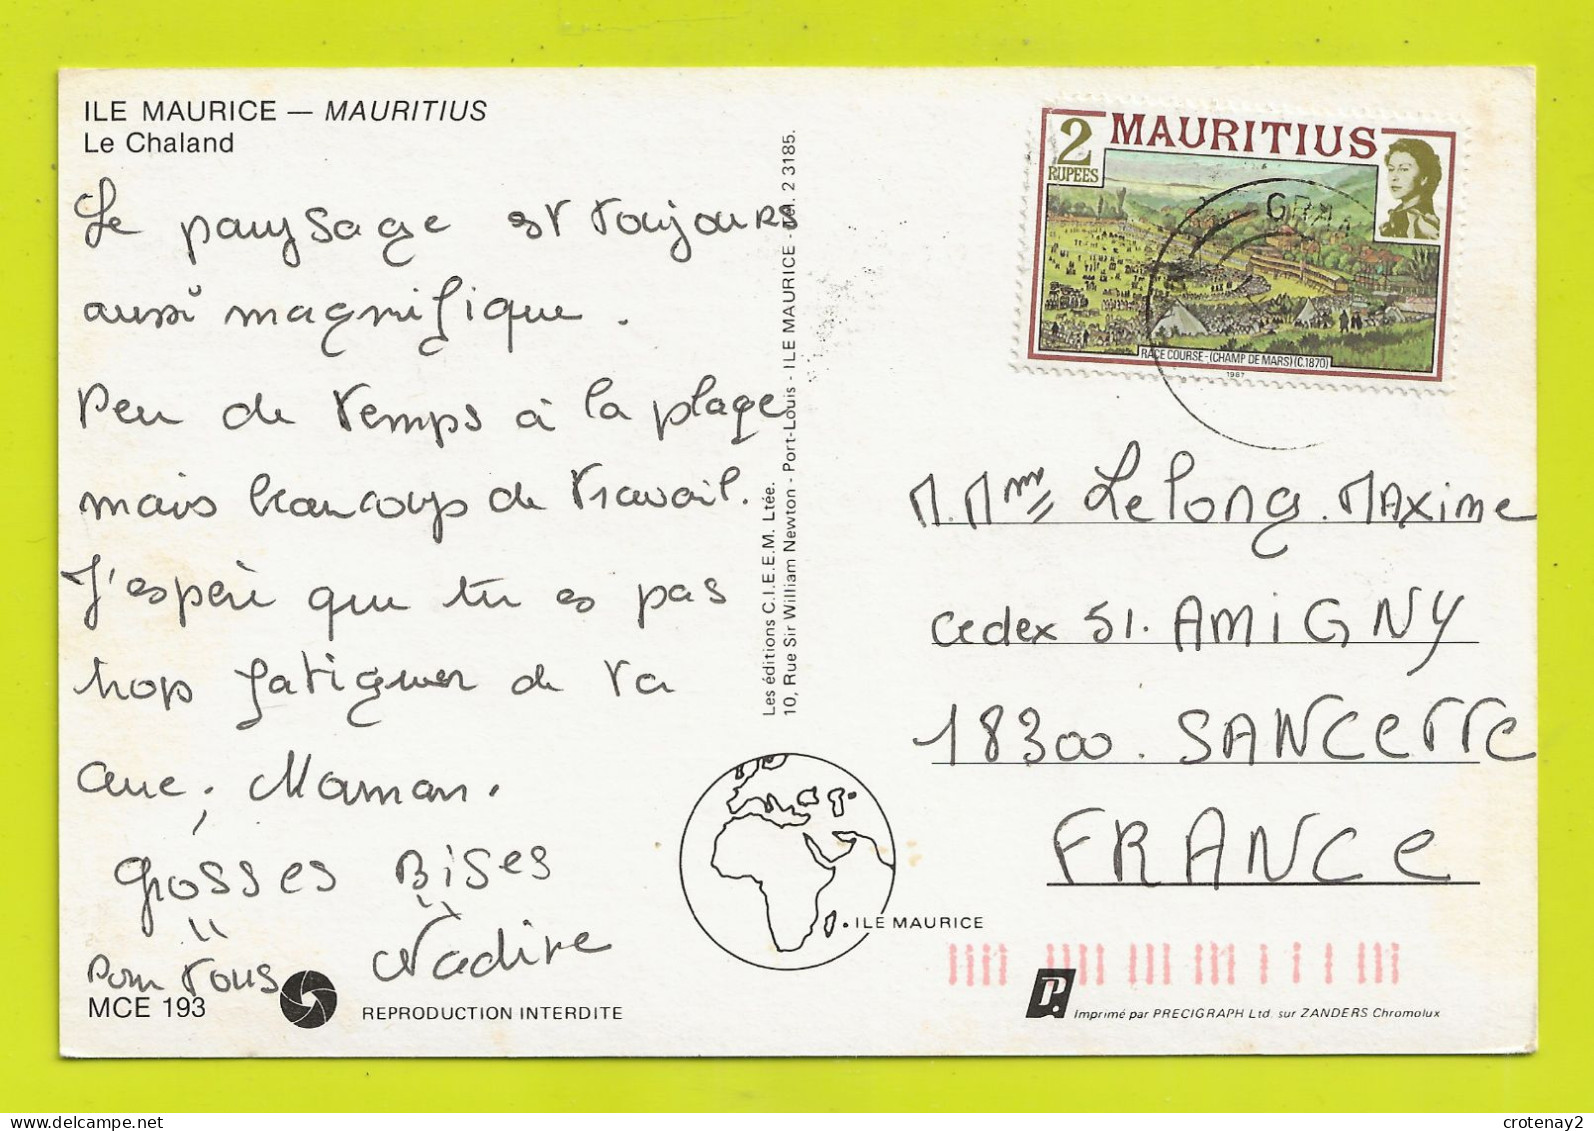 ILE MAURICE — MAURITIUS
Le Chaland
Le paysage est toujours
aussi magnifique.
Peu de temps à la plage
mais beaucoup de travail.
J'espère que tu es pas
trop fatiguer de ta
avec Maman.
Grosses Bises
pour vous Nadine
MCE 193
REPRODUCTION INTERDITE
Les éditions C.I.E.E.M. Ltée.
10, Rue Sir William Newton - Port-Louis - ILE MAURICE - 2 3185.
ILE MAURICE
2 MAURITIUS
RUPEES
RACE COURSE-(CHAMP DE MARS)(C.1870)
1987
M. Mme Lelong. MAXime
cedex 51. AMiGNY
18300. SANCeRRe
FRANCe
P.
Imprimé par PRECIGRAPH Ltd. sur ZANDERS Chromolux
crotenay2